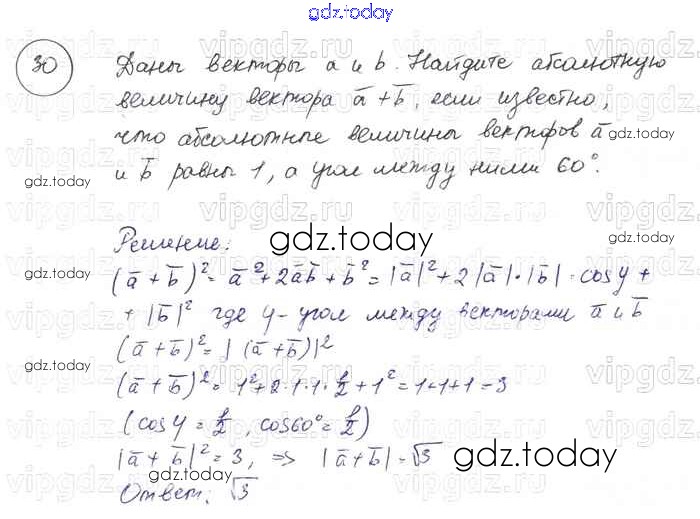 gdz.today
30
Даны векторы a и b. Найдите абсолютную
величину вектора a̅+b̅, если известно,
что абсолютные величины векторов a̅
и b̅ равны 1, а угол между ними 60°.
gdz.today
gdz.today
Решение:
gdz.today
(a̅+b̅)²= a̅²+2a̅b̅+b̅²=|a̅|²+2|a̅|·|b̅|·cosφ+
+|b̅|² где φ-угол между векторами a̅ и b̅
(a̅+b̅)²=|(a̅+b̅)|²
gdz.today
gdz.today
(a̅+b̅)²=1²+2·1·1·1/2+1²=1+1+1=3
(cosφ=1/2, cos60°=1/2)
|a̅+b̅|²=3, => |a̅+b̅|=√3
gdz.today
Ответ: √3
gdz.today
vipgdz.ru